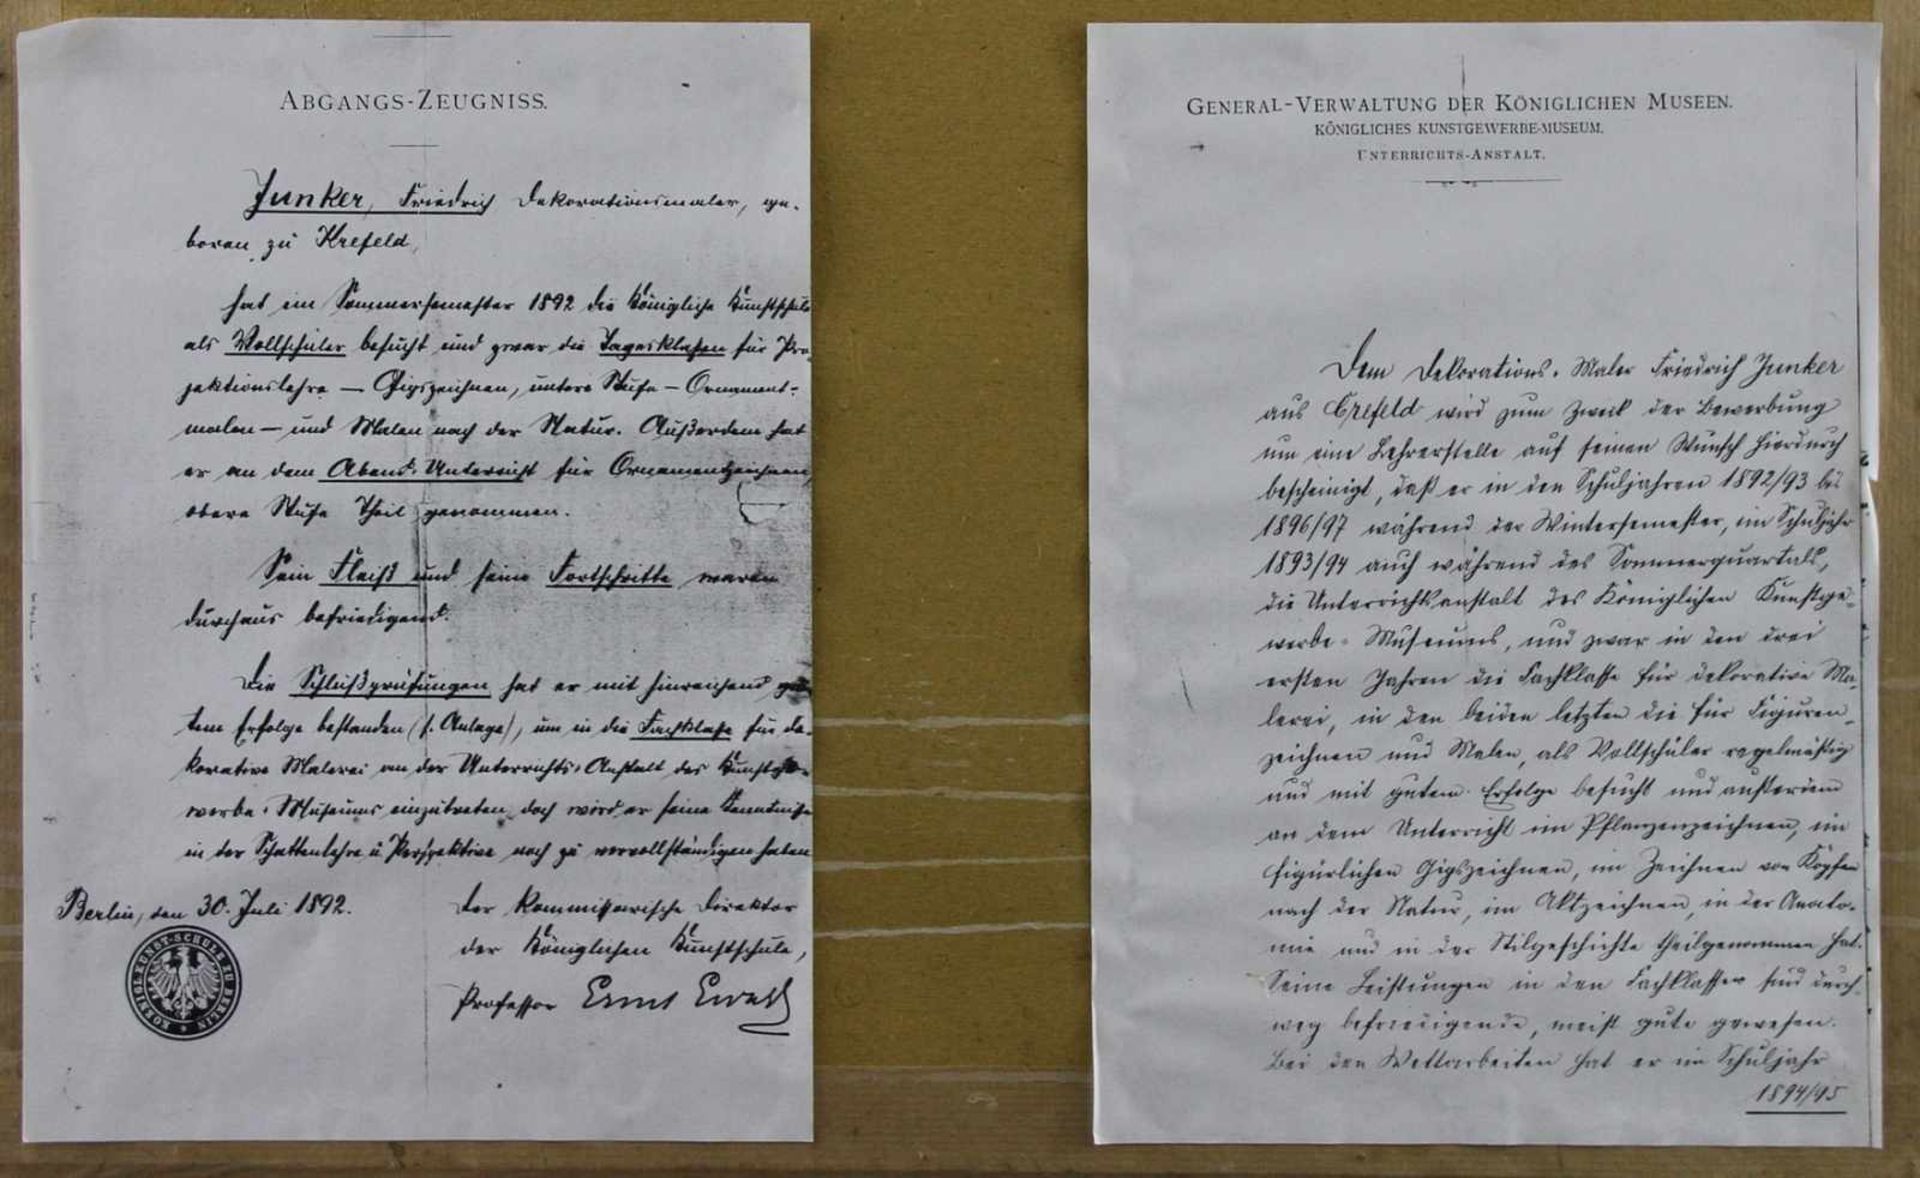 ABGANGS-ZEUGNISS.
Junker, Friedrich Dekorationsmaler, ge-
boren zu Krefeld,
hat im Sommersemester 1892 die Königliche Kunstschule
als Vollschüler besucht und zwar die Tagesklassen für Pro-
jektionslehre — Gipszeichnen, untere Stufe — Ornament-
malen — und Malen nach der Natur. Außerdem hat
er an dem Abend-Unterricht für Ornamentzeichnen,
obere Stufe Theil genommen.
Sein Fleiß und seine Fortschritte waren
durchaus befriedigend.
Die Schlußprüfungen hat er mit hinreichend gu-
tem Erfolge bestanden (s. Anlage), um in die Fachklasse für de-
korative Malerei an der Unterrichts-Anstalt des Kunstge-
werbe-Museums einzutreten, doch wird er seine Kenntnisse
in der Schattenlehre u Perspektive noch zu vervollständigen haben
Berlin, den 30. Juli 1892.
Der kommissarische Direktor
der Königlichen Kunstschule,
Professor Ernst Ewald
KOENIGL. KUNST-SCHULE ZU BERLIN
GENERAL-VERWALTUNG DER KÖNIGLICHEN MUSEEN.
KÖNIGLICHES KUNSTGEWERBE-MUSEUM.
UNTERRICHTS-ANSTALT.
Dem Dekorations-Maler Friedrich Junker
aus Crefeld wird zum Zweck der Bewerbung
um eine Lehrerstelle auf seinen Wunsch hierdurch
bescheinigt, daß er in den Schuljahren 1892/93 bis
1896/97 während der Wintersemester, im Schuljahr
1893/94 auch während des Sommerquartals,
die Unterrichtsanstalt des Königlichen Kunstge-
werbe-Museums, und zwar in den drei
ersten Jahren die Fachklasse für dekorative Ma-
lerei, in den beiden letzten die für Figuren-
zeichnen und Malen, als Vollschüler regelmäßig
und mit gutem Erfolge besucht und außerdem
an dem Unterricht im Pflanzenzeichnen, im
figürlichen Gipszeichnen, im Zeichnen von Köpfen
nach der Natur, im Aktzeichnen, in der Anato-
mie und in der Stilgeschichte theilgenommen hat.
Seine Leistungen in den Fachklassen sind durch-
weg befriedigende, meist gute gewesen.
Bei den Wettarbeiten hat er im Schuljahr
1894/95